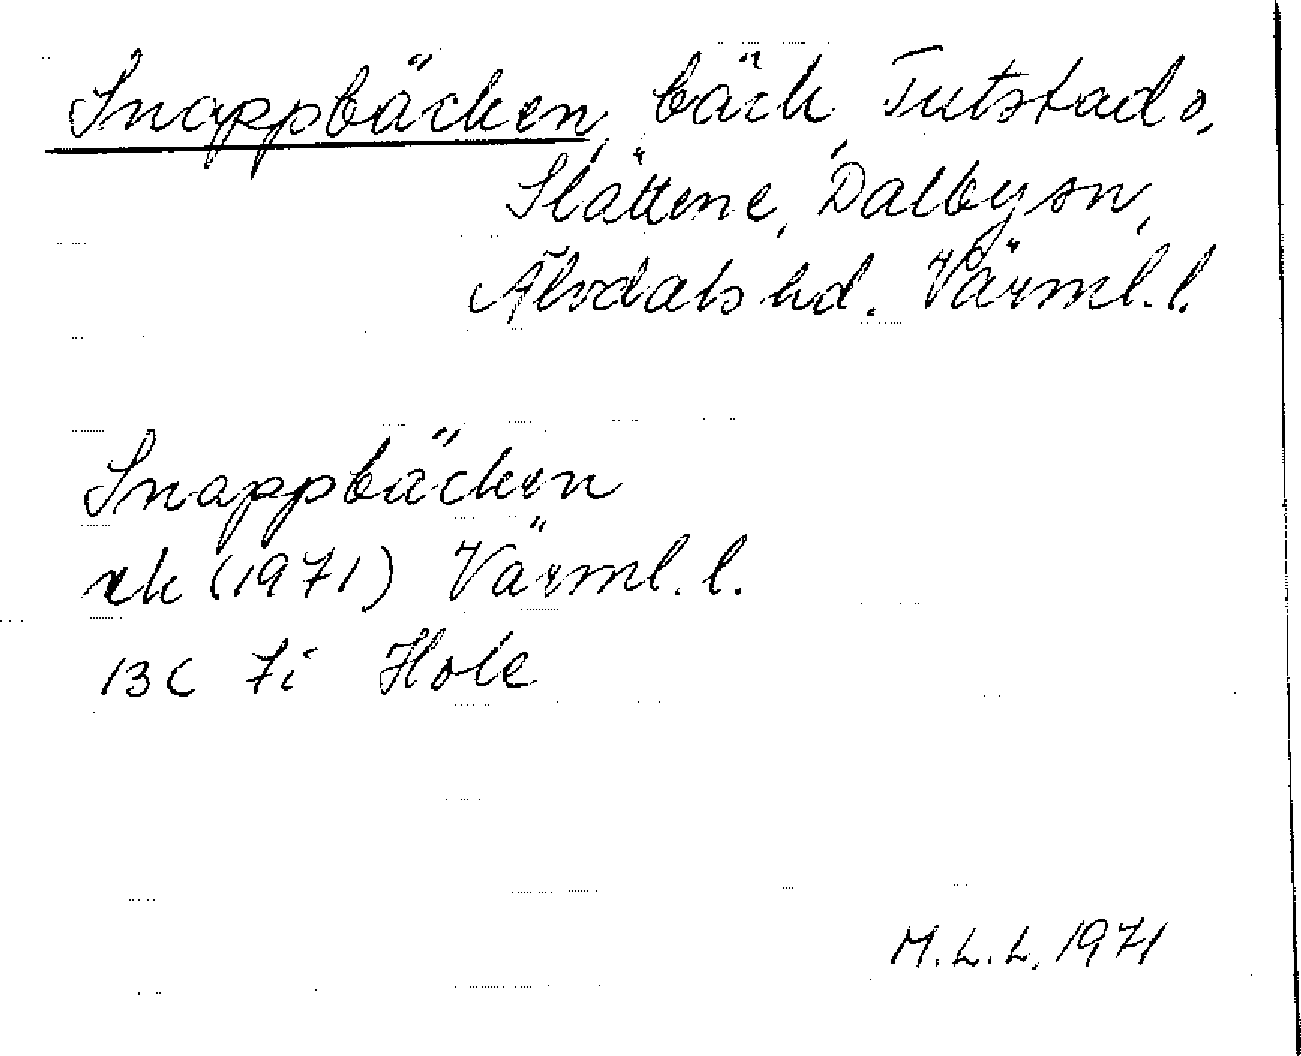 Snappbäcken, bäck, Tutstad o,
Slättene, Dalby sn,
Älvdals hd. Värml. l.
Snappbäcken
rk (1971) Värml. l.
13C 7i Hole
M.L.L. 1971